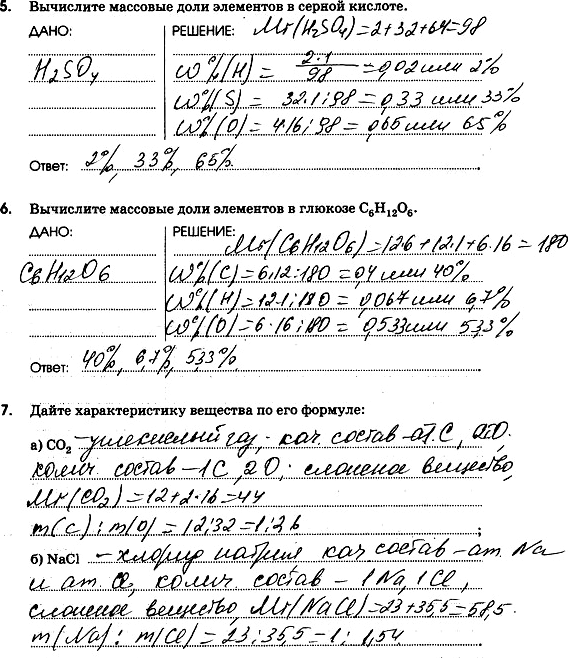 5. Вычислите массовые доли элементов в серной кислоте.
ДАНО: РЕШЕНИЕ: Mr(H₂SO₄)=2+32+64=98
H₂SO₄ W%(H) = 2·1/98 = 0,02 или 2%
W%(S) = 32·1:98 = 0,33 или 33%
W%(O) = 4·16:98 = 0,65 или 65%
Ответ: 2%, 33%, 65%
6. Вычислите массовые доли элементов в глюкозе C₆H₁₂O₆.
ДАНО: РЕШЕНИЕ:
Mr(C6H12O6)=12·6+12·1+6·16=180
C6H12O6 W%(C)=6·12:180=0,4 или 40%
W%(H)=12·1:180=0,067 или 6,7%
W%(O)=6·16:180=0,533 или 53,3%
Ответ: 40%, 6,7%, 53,3%
7. Дайте характеристику вещества по его формуле:
а) CO₂ – углекислый газ; кач. состав – ат. C,
колич. состав – 1C, 2O; сложное вещество,
Mr(CO₂)=12+2·16=44
m(C):m(O)=12:32=1:2,6 ;
б) NaCl – хлорид натрия, кач состав – ат. Na
и ат. Cl, колич. состав – 1Na, 1Cl,
сложное вещество, Mr(NaCl)=23+35,5=58,5.
m(Na):m(Cl)=23:35,5=1:1,54